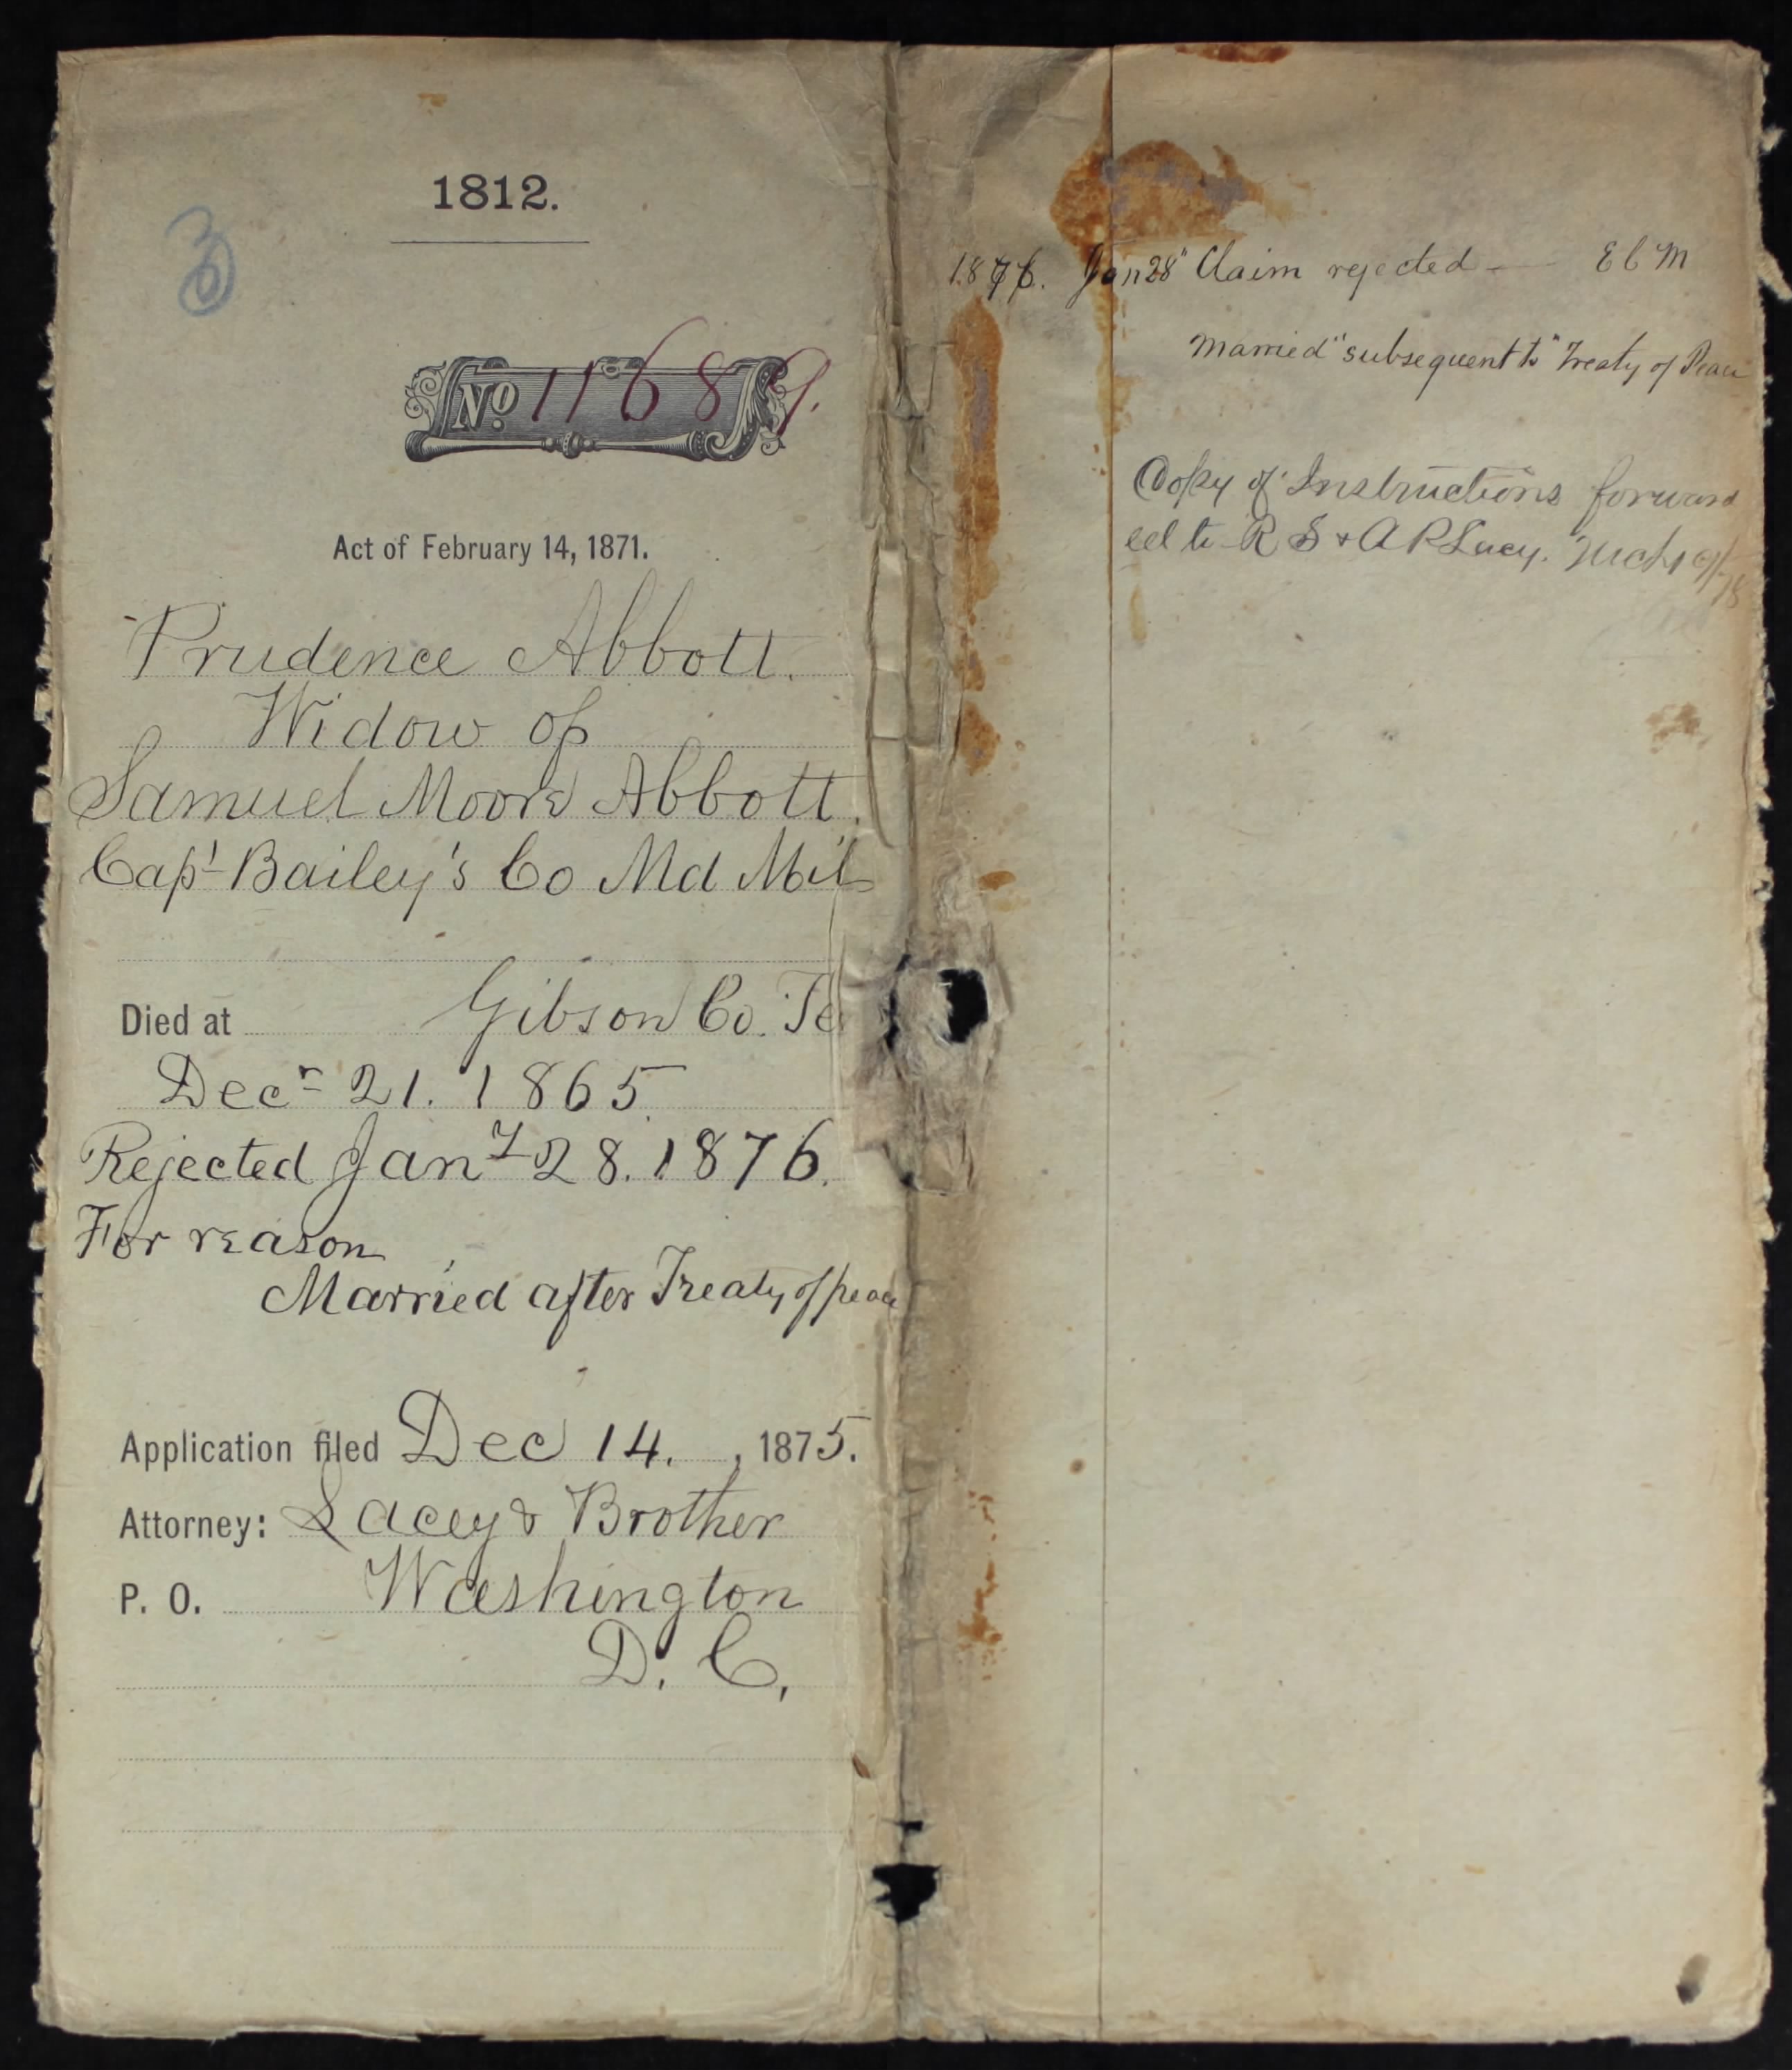 1812.
3
No 11689.
Act of February 14, 1871.
Prudence Abbott.
Widow of
Samuel Moore Abbott.
Capt Bailey's Co Md Mil
Died at Gibson Co. Te
Decr 21. 1865.
Rejected Jany 28. 1876.
For reason
Married after Treaty of peace
Application filed Dec 14. , 1875.
Attorney: Lacey & Brother
P. O. Washington
D. C.
1876. Jan 28" Claim rejected — E C M
Married "subsequent to" Treaty of Peace
Copy of Instructions forward
ed to R S & A P Lacy.